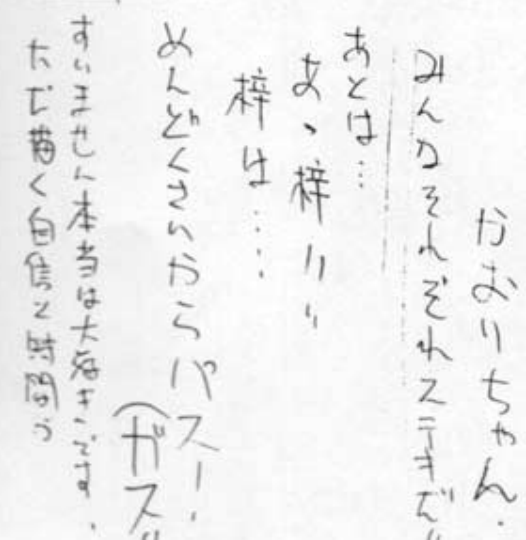 かおりちゃん.
みんなそれぞれステキだ〃
あとは…
あ、梓〃〃
梓は……
めんどくさいからパスー!
(ガス〃
すいません本当は大好きです、
ただ描く自信と時間う